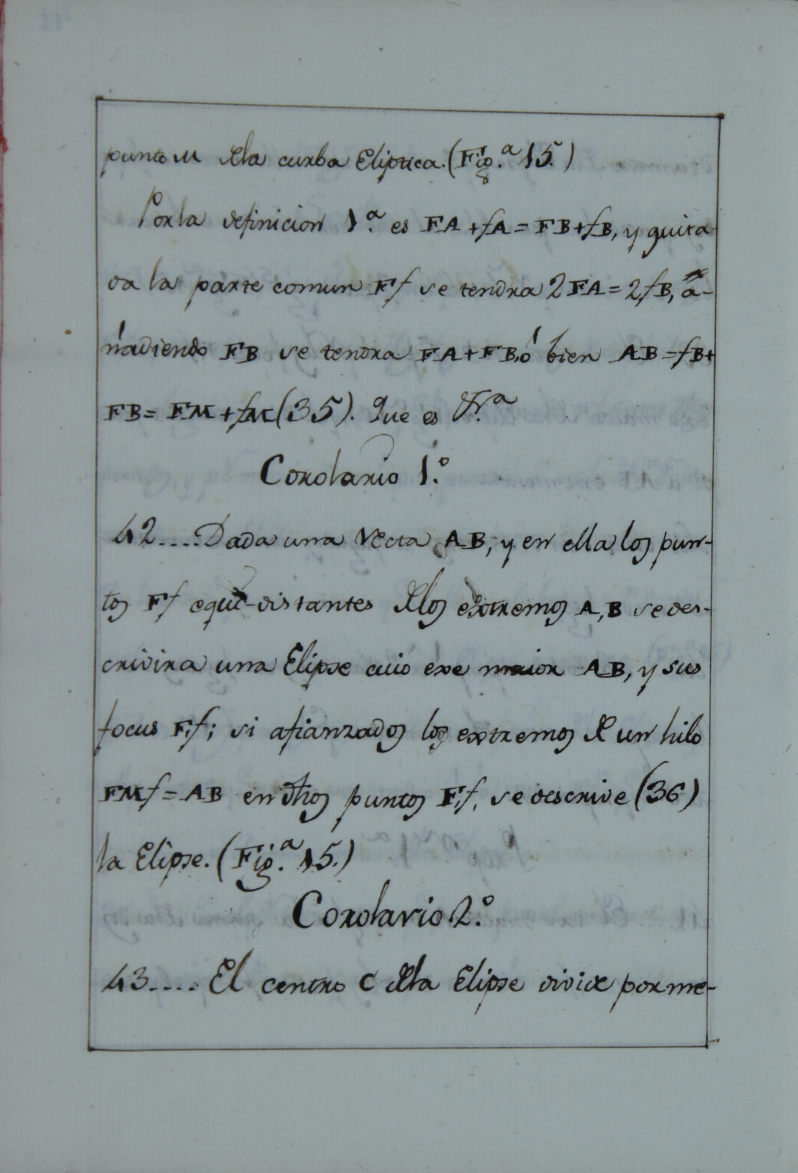 punto M dela curba Eliptica. (Fig.ª 15)
Por la definicion 1.ª es FA + fA = FB + fB, y quita-
da la parte comun Ff se tendra 2FA = 2fB, a-
ñadiendo FB se tendra FA + FB ó bien AB = fB +
FB = FM + fM (35). Que es &.ª
Corolario 1.º
42.... Dada una recta AB, y en ella los pun-
tos Ff equi-distantes delos extremos A, B se des-
crivira una Elipse cuio exe maior AB, y sus
focus F, f; si afianzados los extremos de un hilo
FMf = AB en dhos puntos F, f, se descrive (36)
la Elipse. (Fig.ª 15.)
Corolario 2.º
43.... El centro C dela Elipse divide por me-